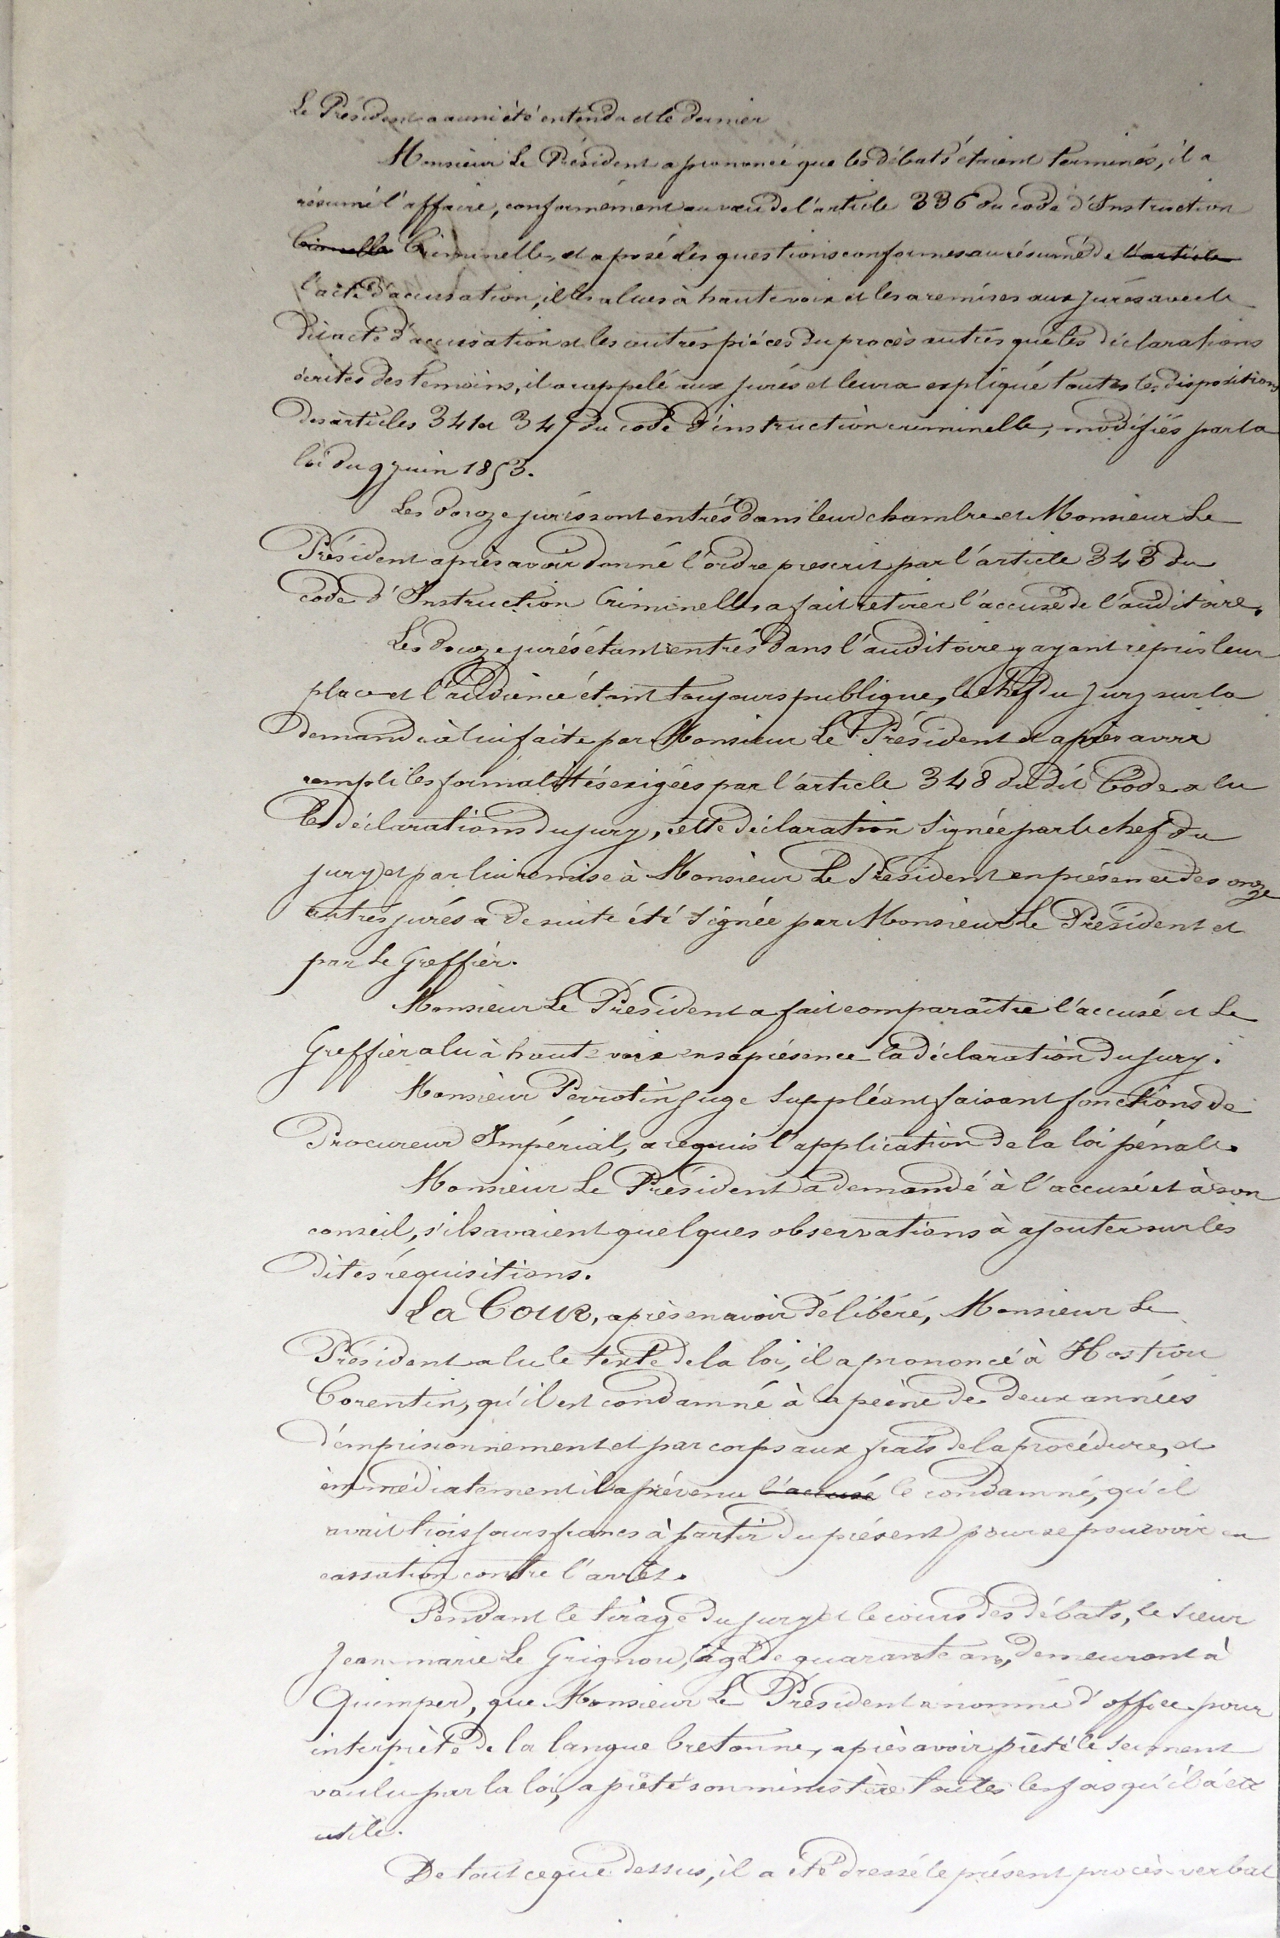 Le Président a aussi été entendu et le dernier
Monsieur Le Président a prononcé que les débats étaient terminés, il a
résumé l'affaire, conformément au vœu de l'article 336 du code d'Instruction
Criminelle, et a posé les questions conformes au résumé de l'article
l'acte d'accusation, il les a lues à haute voix et les a remises aux jurés avec le
dit acte d'accusation et les autres pièces du procès autres que les déclarations
écrites des temoins, il a rappelé aux jurés et leur a expliqué toutes les dispositions
des articles 341 et 347 du code d'instruction criminelle, modifiés par la
loi du 9 juin 1853.
Les douze jurés sont entrés dans leur chambre et Monsieur Le
Président après avoir donné l'ordre prescrit par l'article 343 du
code d'Instruction Criminelle, a fait retirer l'accusé de l'auditoire.
Les douze jurés étant entrés dans l'auditoire y ayant repris leur
place et l'audience étant toujours publique, le chef du jury sur la
demande à lui faite par Monsieur Le Président et après avoir
rempli les formalités exigées par l'article 348 du dit Code a lu
les déclarations du jury, cette déclaration signée par le chef du
jury et par lui remise à Monsieur Le Président en présence des onze
autres jurés a de suite été signée par Monsieur Le Président et
par Le Greffier.
Monsieur Le Président a fait comparaître l'accusé et Le
Greffier a lu à haute voix en sa présence la déclaration du jury.
Monsieur Perrotin juge Suppléant faisant fonctions de
Procureur Impérial, a requis l'application de la loi pénale.
Monsieur Le Président a demandé à l'accusé et à son
conseil, s'ils avaient quelques observations à ajouter sur les
dites réquisitions.
La Cour, après en avoir délibéré, Monsieur Le
Président a lu le texte de la loi, il a prononcé à Hostiou
Corentin, qu'il est condamné à la peine de deux années
d'emprisonnement et par corps aux frais de la procédure, et
immédiatement il a prévenu l'accusé le condamné, qu'il
avait trois jours francs à partir du présent pour se pourvoir en
cassation contre l'arrêt.
Pendant le tirage du jury et le cours des débats, le sieur
Jean-marie Le Grignou, âgé de quarante ans, demeurant à
Quimper, que Monsieur Le Président a nommé d'office pour
interprète de la langue bretonne, après avoir prêté le serment
voulu par la loi, a prêté son ministère toutes les fois qu'il a été
utile.
De tout ce que dessus, il a été dressé le présent procès-verbal